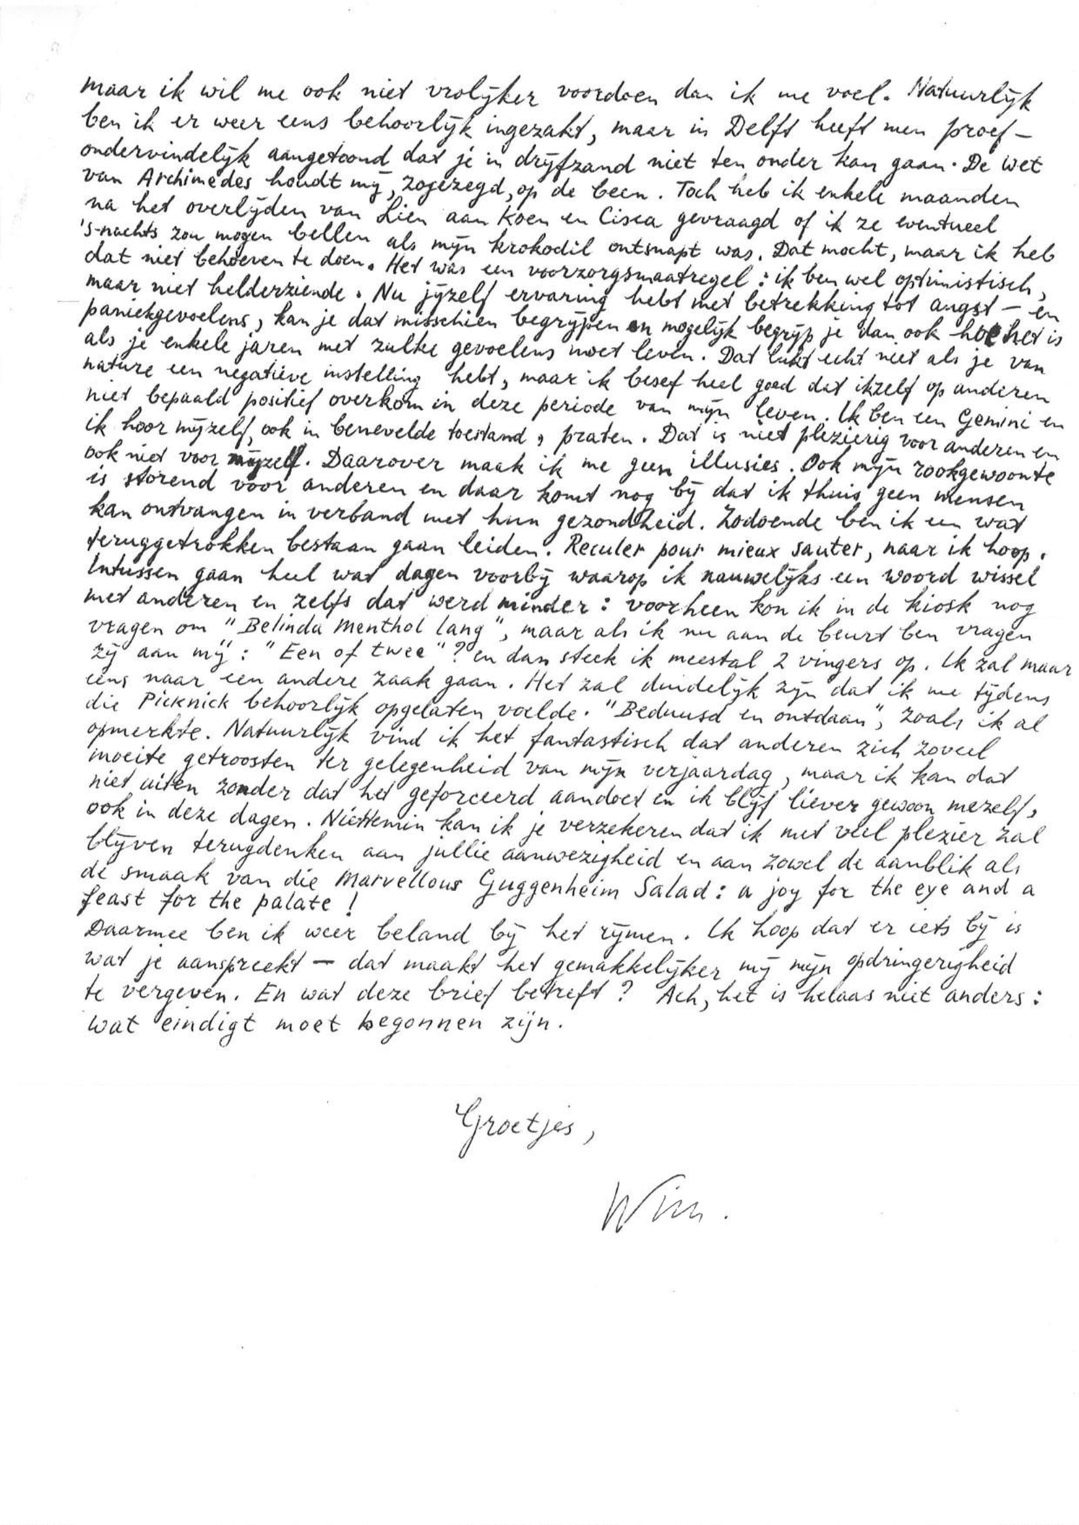 maar ik wil me ook niet vrolijker voordoen dan ik me voel. Natuurlijk
ben ik er weer eens behoorlijk ingezakt, maar in Delft heeft men proef-
ondervindelijk aangetoond dat je in drijfzand niet ten onder kan gaan. De wet
van Archimedes houdt mij, zogezegd, op de been. Toch heb ik enkele maanden
na het overlijden van Lien aan Koen en Cisca gevraagd of ik ze eventueel
's-nachts zou mogen bellen als mijn krokodil ontsnapt was. Dat mocht, maar ik heb
dat niet behoeven te doen. Het was een voorzorgsmaatregel: ik ben wel optimistisch,
maar niet helderziende. Nu jijzelf ervaring hebt met betrekking tot angst- en
paniekgevoelens, kan je dat misschien begrijpen en mogelijk begrijp je dan ook hoe het is
als je enkele jaren met zulke gevoelens moet leven. Dat lukt echt niet als je van
nature een negatieve instelling hebt, maar ik besef heel goed dat ikzelf op anderen
niet bepaald positief overkom in deze periode van mijn leven. Ik ben een Gemini en
ik hoor mijzelf, ook in benevelde toestand, praten. Dat is niet plezierig voor anderen en
ook niet voor mijzelf. Daarover maak ik me geen illusies. Ook mijn rookgewoonte
is storend voor anderen en daar komt nog bij dat ik thuis geen mensen
kan ontvangen in verband met hun gezondheid. Zodoende ben ik een wat
teruggetrokken bestaan gaan leiden. Reculer pour mieux sauter, naar ik hoop.
Intussen gaan heel wat dagen voorbij waarop ik nauwelijks een woord wissel
met anderen en zelfs dat werd minder: voorheen kon ik in de kiosk nog
vragen om "Belinda Menthol lang", maar als ik nu aan de beurt ben vragen
zij aan mij: "Een of twee"? en dan steek ik meestal 2 vingers op. Ik zal maar
eens naar een andere zaak gaan. Het zal duidelijk zijn dat ik me tijdens
die Picknick behoorlijk opgelaten voelde. "Beduusd en ontdaan", zoals ik al
opmerkte. Natuurlijk vind ik het fantastisch dat anderen zich zoveel
moeite getroosten ter gelegenheid van mijn verjaardag, maar ik kan dat
niet uiten zonder dat het geforceerd aandoet en ik blijf liever gewoon mezelf,
ook in deze dagen. Niettemin kan ik je verzekeren dat ik met veel plezier zal
blijven terugdenken aan jullie aanwezigheid en aan zowel de aanblik als
de smaak van die Marvellous Guggenheim Salad: a joy for the eye and a
feast for the palate!
Daarmee ben ik weer beland bij het rijmen. Ik hoop dat er iets bij is
wat je aanspreekt — dat maakt het gemakkelijker mij mijn opdringerigheid
te vergeven. En wat deze brief betreft? Ach, het is helaas niet anders:
wat eindigt moet begonnen zijn.
Groetjes,
Wim.